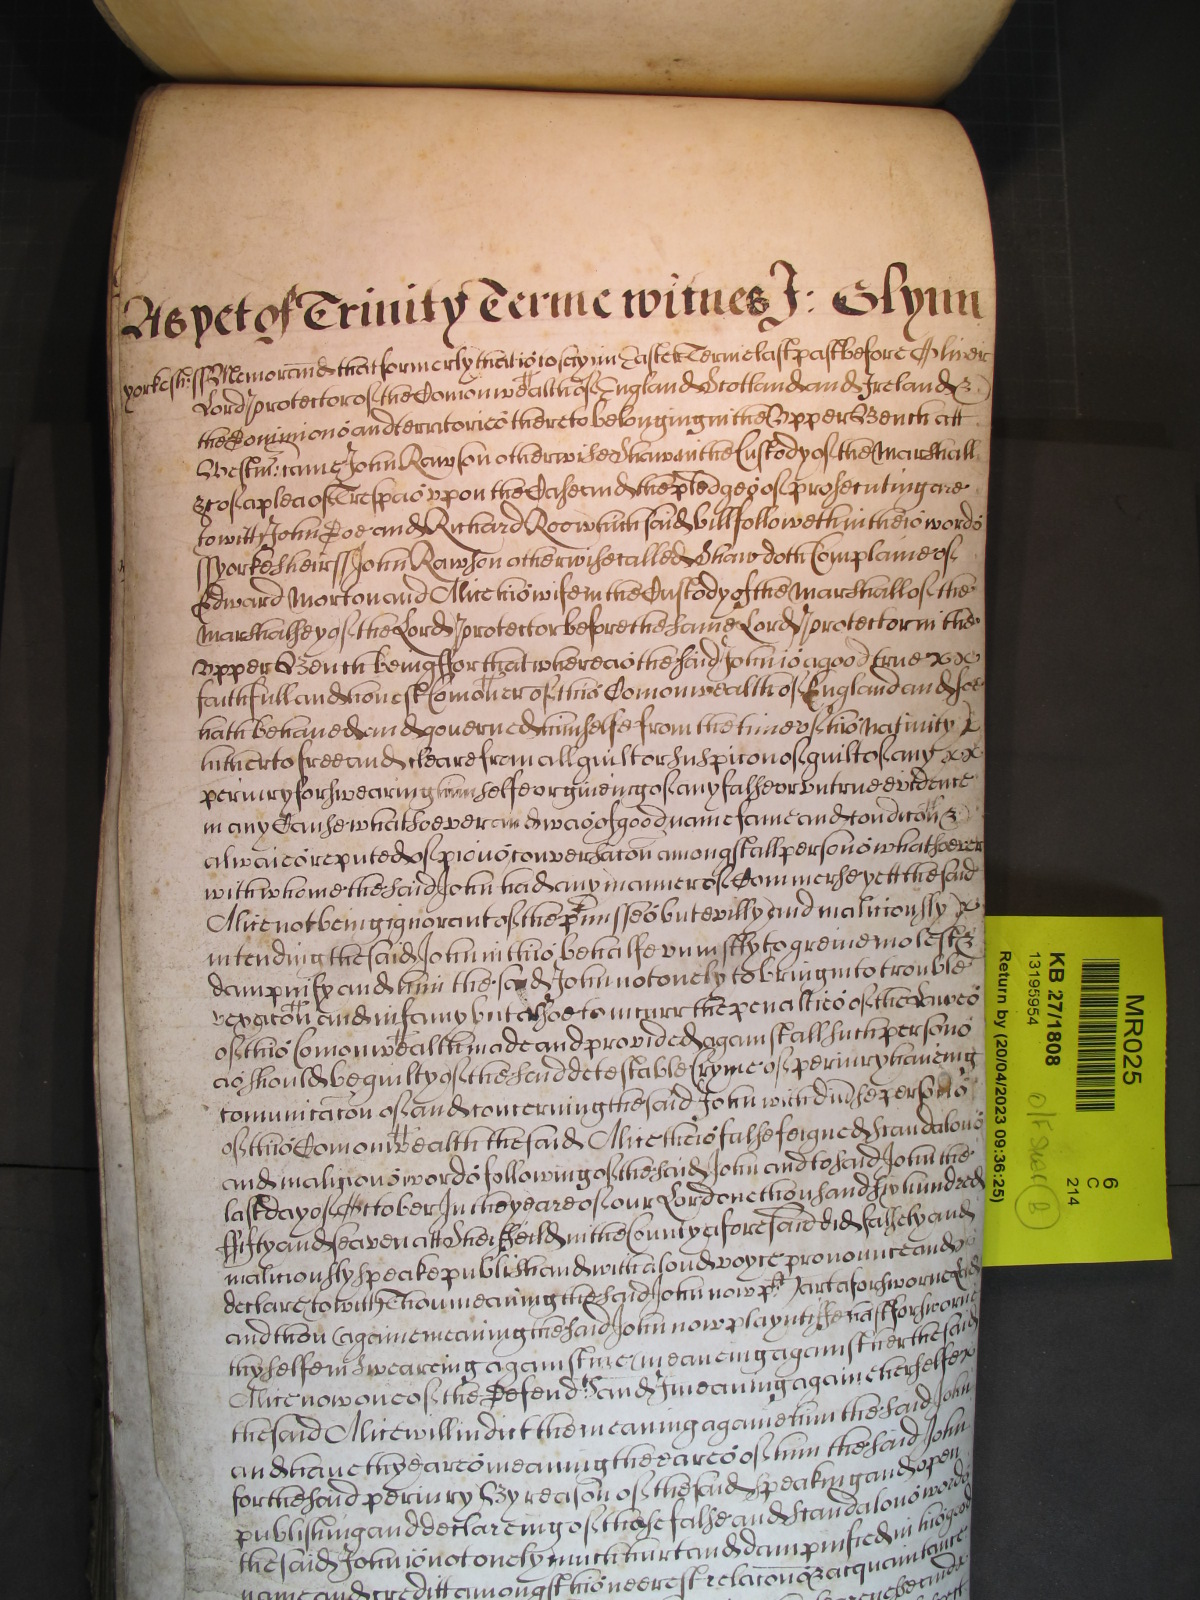 As yet of Trinity Terme witnes J: Glynn
yorkesh: ss Memorand that formerly that is to say in Easter Terme last past before Oliver
Lord Protector of the Comonwealth of England Scotland and Ireland &
the Dominions and territories thereto belonging in the Upper Bench att
Westm: came John Rawson otherwise Shaw in the Custody of the Marshall
&c of a plea of Trespas upon the Case and the pledges of prosecuting are
to witt John Doe and Richard Roe which said bill followeth in theis words
ss yorkesheire ss John Rawson otherwise called Shaw doth Complaine of
Edward Morton and Alice his wife in the Custody of the Marshall of the
Marshalsey of the Lord Protector before the same Lord Protector in the
Upper Bench being ffor that whereas the said John is a good true
faithfull and honest Comoner of this Comonwealth of England and soe
hath behaved and governed himselfe from the time of his Nativity
hitherto free and cleare from all guilt or suspicon of guilt of any
periury forswearing himselfe or giveing of any false or untrue evidence
in any Cause whatsoever and was of good name fame and condicon &
alwaies reputed of pious conversacon amongst all persons whatsoever
with whome the said John had any manner of Commerse yett the said
Alice not being ignorant of the pmisses but evilly and maliciously
intending the said John in this behalfe uniustly to greive molest &
dampnify and him the said John not onely to bring into trouble
vexacon and infamy but alsoe to incurr the penalties of the Lawes
of this Comonwealth made and provided against all such persons
as should be guilty of the said detestable Cryme of periury haveing
comunicacon of and concerning the said John with divse persons
of this Comonwealth the said Alice theis false feigned scandalous
and malignous words following of the said John and to said John the
last day of October In the yeare of our Lord one thousand six hundred
ffifty and seaven att Sheiffeild in the County aforesaid did falsely and
maliciously speake publish and with a loud voyce pronounce and
declare to witt Thou meaning the said John now pt art a forsworne
and thou againe meaning the said John now playntiffe hast forsworne
thy selfe in sweareing against me meaneing against her the said
Alice now one of the Defendts and I meaning againe herselfe
the said Alice will indict thee meaning againe him the said John
and have thy eares meaning the eares of him the said John
for the said periury By reason of the said speaking and open
publishing and declareing of these false and scandalous words
the said John is not onely much hurt and dampnified in his good
name and creditt amongst his neerest relacons & acquaintance
MR025
6
C
214
KB 27/1808
13195954
Return by (20/04/2023 09:36:25)